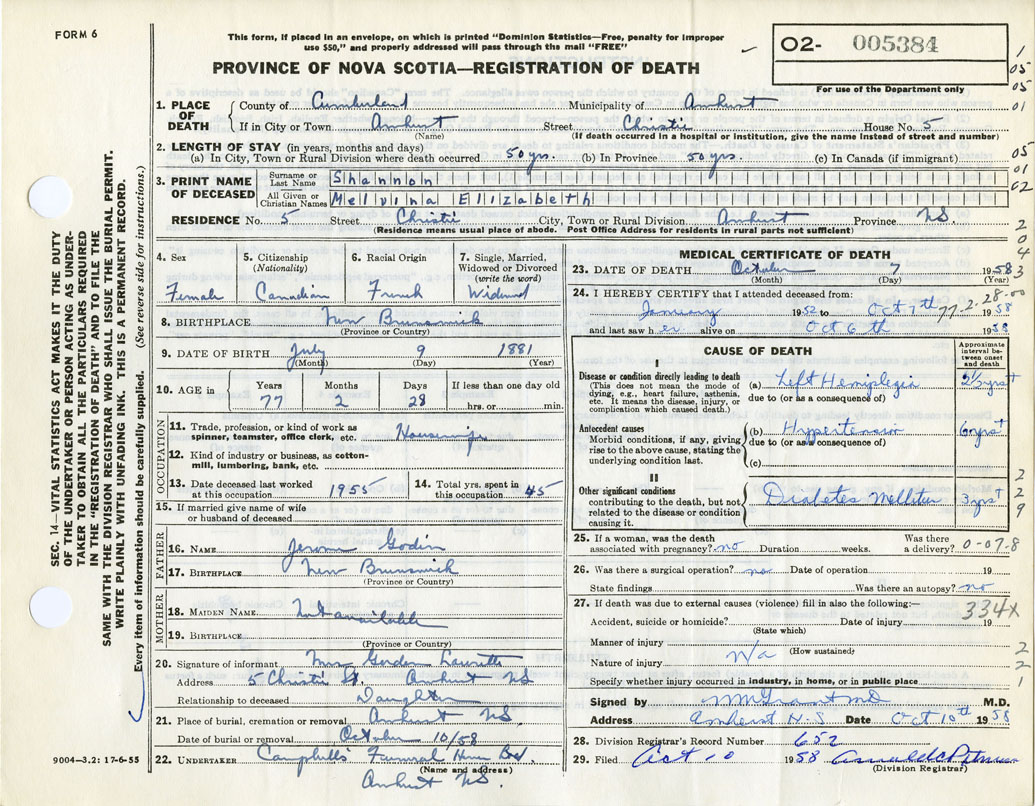 FORM 6
This form, if placed in an envelope, on which is printed "Dominion Statistics—Free, penalty for improper
use $50," and properly addressed will pass through the mail "FREE"
O2- 005384
PROVINCE OF NOVA SCOTIA—REGISTRATION OF DEATH
For use of the Department only
1. PLACE OF DEATH
County of Cumberland Municipality of Amherst
If in City or Town Amherst Street Christie House No. 5
(Name) (If death occurred in a hospital or institution, give the name instead of street and number)
2. LENGTH OF STAY (in years, months and days)
(a) In City, Town or Rural Division where death occurred 50 yrs. (b) In Province 50 yrs. (c) In Canada (if immigrant)
3. PRINT NAME OF DECEASED
Surname or Last Name Shannon
All Given or Christian Names Melvina Elizabeth
RESIDENCE No. 5 Street Christie City, Town or Rural Division Amherst Province N.S.
(Residence means usual place of abode. Post Office Address for residents in rural parts not sufficient)
4. Sex
Female
5. Citizenship
(Nationality)
Canadian
6. Racial Origin
French
7. Single, Married,
Widowed or Divorced
(write the word)
Widowed
8. BIRTHPLACE New Brunswick
(Province or Country)
9. DATE OF BIRTH July 9 1881
(Month) (Day) (Year)
10. AGE in Years Months Days If less than one day old
77 2 28 hrs. or min.
OCCUPATION
11. Trade, profession, or kind of work as
spinner, teamster, office clerk, etc. Housewife
12. Kind of industry or business, as cotton-
mill, lumbering, bank, etc.
13. Date deceased last worked
at this occupation 1955
14. Total yrs. spent in
this occupation 45
15. If married give name of wife
or husband of deceased
FATHER
16. NAME Jerome Godin
17. BIRTHPLACE New Brunswick
(Province or Country)
MOTHER
18. MAIDEN NAME Not available
19. BIRTHPLACE
(Province or Country)
20. Signature of informant Mrs Gordon
Address 5 Christie St. Amherst NS
Relationship to deceased Daughter
21. Place of burial, cremation or removal Amherst NS.
Date of burial or removal October 10/58
22. UNDERTAKER Campbell's Funeral Home
(Name and address)
Amherst NS.
9004—3.2: 17-6-55
MEDICAL CERTIFICATE OF DEATH
23. DATE OF DEATH October 7 1958
(Month) (Day) (Year)
24. I HEREBY CERTIFY that I attended deceased from:
January 1952 to Oct 7th 1958
77.2.28.00
and last saw her alive on Oct 6th 1958
CAUSE OF DEATH
Approximate
interval be-
tween onset
and death
I
Disease or condition directly leading to death
(This does not mean the mode of
dying, e.g., heart failure, asthenia,
etc. It means the disease, injury, or
complication which caused death.)
(a) Left Hemiplegia 2½ yrs +
due to (or as a consequence of)
Antecedent causes
Morbid conditions, if any, giving
rise to the above cause, stating the
underlying condition last.
(b) Hypertension 6 yrs +
due to (or as a consequence of)
(c)
II
Other significant conditions
contributing to the death, but not
related to the disease or condition
causing it.
Diabetes Mellitus 3 yrs +
25. If a woman, was the death
associated with pregnancy? no Duration weeks. Was there
a delivery? 0-07.8
26. Was there a surgical operation? no Date of operation 19
State findings Was there an autopsy? no
27. If death was due to external causes (violence) fill in also the following:—
334X
Accident, suicide or homicide? Date of injury 19
(State which)
Manner of injury
(How sustained)
Nature of injury N/a
Specify whether injury occurred in industry, in home, or in public place
Signed by Grant MD M.D.
Address Amherst N.S Date Oct 10th 1958
28. Division Registrar's Record Number 652
29. Filed Oct 10 1958
(Division Registrar)
SEC. 14—VITAL STATISTICS ACT MAKES IT THE DUTY
OF THE UNDERTAKER OR PERSON ACTING AS UNDER-
TAKER TO OBTAIN ALL THE PARTICULARS REQUIRED
IN THE "REGISTRATION OF DEATH" AND TO FILE THE
SAME WITH THE DIVISION REGISTRAR WHO SHALL ISSUE THE BURIAL PERMIT.
WRITE PLAINLY WITH UNFADING INK. THIS IS A PERMANENT RECORD.
Every item of information should be carefully supplied. (See reverse side for instructions.)
1
05
05
01
01
02
2
0
4
3
2
2
9
2
2
1